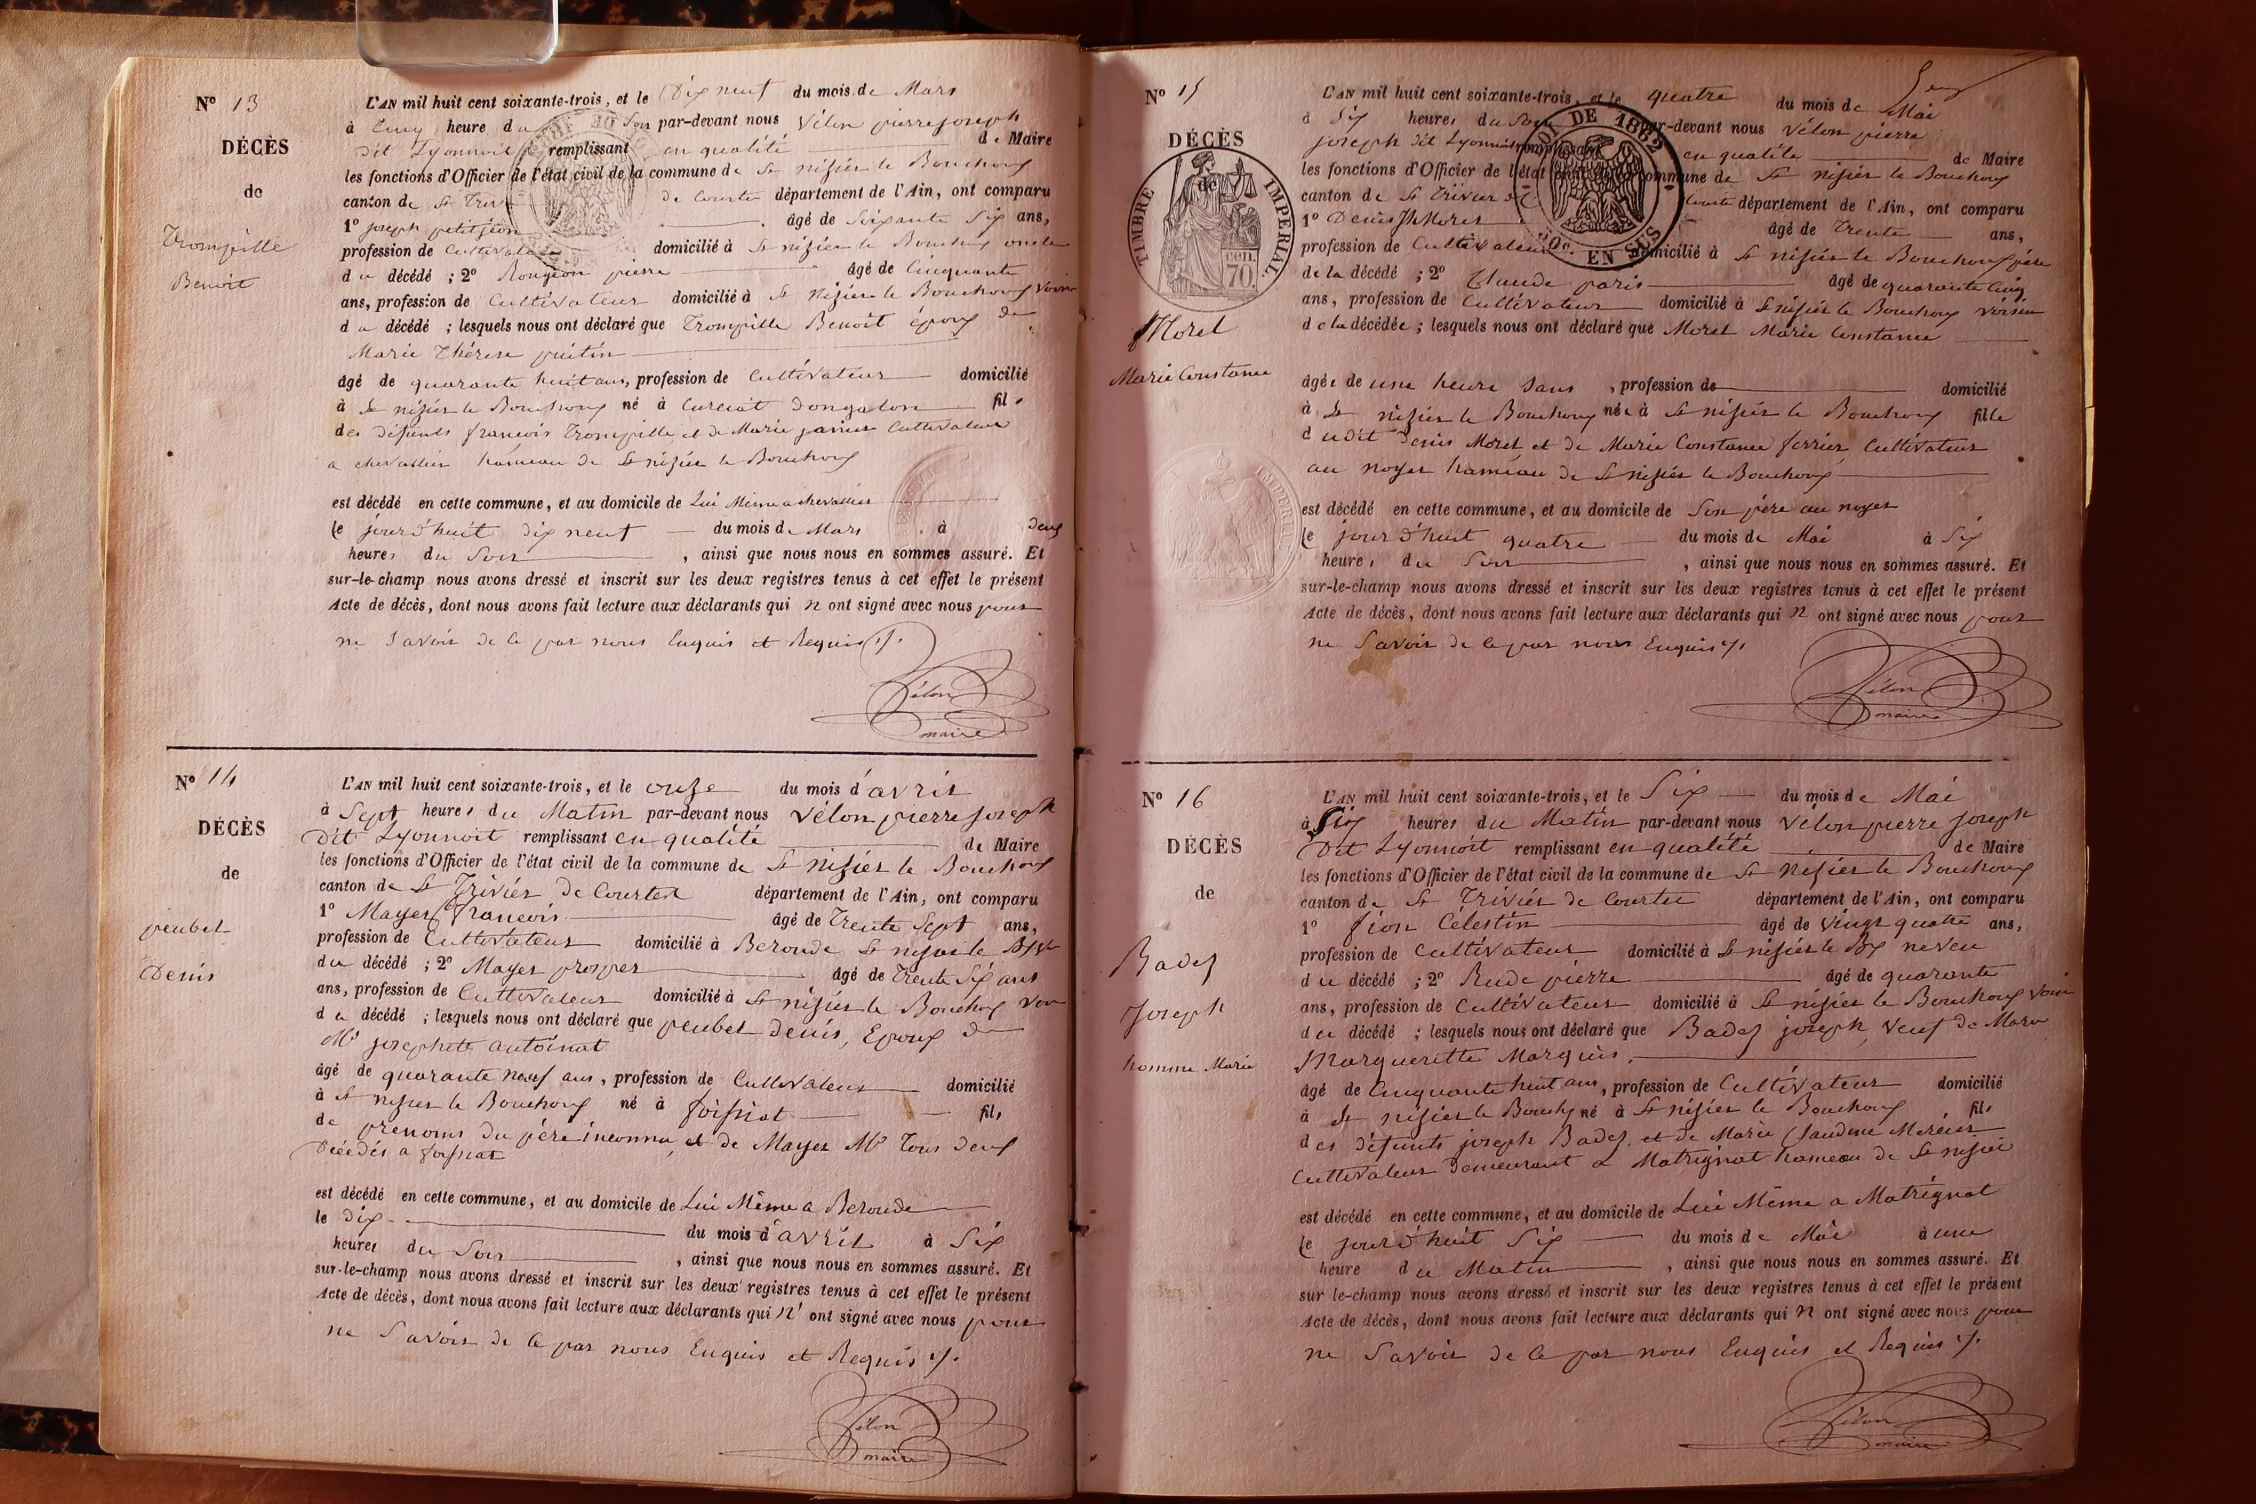 Nº 13
DÉCÈS
de
Trompille
Benoit
L'AN mil huit cent soixante-trois, et le Dix neuf du mois de Mars
à heure du Soir par-devant nous Vélon pierre joseph
dit Lyonnoit remplissant en qualité de Maire
les fonctions d'Officier de l'état civil de la commune de St nizier le Bouchoux
canton de St Triv de Courte département de l'Ain, ont comparu
1º joseph petitjean âgé de Soixante Six ans,
profession de Cultivateur domicilié à St nizier le Bouchoux oncle
du décédé ; 2º Rongeon pierre âgé de Cinquante
ans, profession de Cultivateur domicilié à St Nizier le Bouchoux voisin
du décédé ; lesquels nous ont déclaré que Trompille Benoit époux de
Marie Thérese
âgé de quarante huit ans, profession de Cultivateur domicilié
à St nizier le Bouchoux né à Curciat dongalon fils
des défunts francois Trompille et de Marie janier Cultivateur
a chevallier hameau de St nizier le Bouchoux
est décédé en cette commune, et au domicile de Lui Même a chevallier
le jourd'huit dix neuf du mois de Mars à deux
heures du Soir , ainsi que nous nous en sommes assuré. Et
sur-le-champ nous avons dressé et inscrit sur les deux registres tenus à cet effet le présent
Acte de décès, dont nous avons fait lecture aux déclarants qui n ont signé avec nous pour
ne Savoir de ce par nous Enquis et Requis ./.
Vélon
maire
Nº 14
DÉCÈS
de
peubet
Denis
L'AN mil huit cent soixante-trois, et le onze du mois d'avril
à Sept heures du Matin par-devant nous Vélon pierre Joseph
Dit Lyonnoit remplissant en qualité de Maire
les fonctions d'Officier de l'état civil de la commune de St Nizier le Bouchoux
canton de St Trivier de Courtes département de l'Ain, ont comparu
1º Mayer francois âgé de Trente Sept ans,
profession de Cultivateur domicilié à Beronde St nizier le
du décédé ; 2º Mayer prosper âgé de Trente Six ans
ans, profession de Cultivateur domicilié à St nizier le Bouchoux
du décédé ; lesquels nous ont déclaré que peubet Denis, Epoux de
Mie josephete antoinat
âgé de quarante neuf ans, profession de Cultivateur domicilié
à St nizier le Bouchoux né à foissiat fils
de prenoms du père inconnu, et de Mayer Mie Tous deux
Décédés a foissiat
est décédé en cette commune, et au domicile de Lui Même a Beronde
le dix du mois d'avril à Six
heures du Soir , ainsi que nous nous en sommes assuré. Et
sur-le-champ nous avons dressé et inscrit sur les deux registres tenus à cet effet le présent
Acte de décès, dont nous avons fait lecture aux déclarants qui n' ont signé avec nous pour
ne Savoir de ce par nous Enquis et Requis ./.
Vélon
maire
Nº 15
DÉCÈS
de
TIMBRE IMPÉRIAL
cen. 70.
Morel
Marie Constance
LOI DE 1862
EN SUS
L'AN mil huit cent soixante-trois, et le quatre du mois de Mai
à Six heures du Soir par-devant nous Vélon pierre
joseph dit Lyonnoit remplissant en qualité de Maire
les fonctions d'Officier de l'état civil de la commune de St nizier le Bouchoux
canton de St Trivier de Courte département de l'Ain, ont comparu
1º Denis Morel âgé de Trente ans,
profession de Cultivateur domicilié à St nizier le Bouchoux père
de la décédé ; 2º Claude paris âgé de quarante Cinq
ans, profession de Cultivateur domicilié à St nizier le Bouchoux voisin
de la décédée ; lesquels nous ont déclaré que Morel Marie Constance
âgée de une heure Sans , profession de domicilié
à St nizier le Bouchoux née à St nizier le Bouchoux fille
du dit Denis Morel et de Marie Constance ferrier Cultivateur
au noyer hameau de St nizier le Bouchoux
est décédé en cette commune, et au domicile de Son père au noyer
le jourd'huit quatre du mois de Mai à Six
heures du Soir , ainsi que nous nous en sommes assuré. Et
sur-le-champ nous avons dressé et inscrit sur les deux registres tenus à cet effet le présent
Acte de décès, dont nous avons fait lecture aux déclarants qui n ont signé avec nous pour
ne Savoir de ce par nous Enquis ./.
Vélon
maire
Nº 16
DÉCÈS
de
Badez
Joseph
homme Marie
L'AN mil huit cent soixante-trois, et le Six du mois de Mai
à Six heures du Matin par-devant nous Vélon pierre Joseph
Dit Lyonnoit remplissant en qualité de Maire
les fonctions d'Officier de l'état civil de la commune de St Nizier le Bouchoux
canton de St Trivier de Courtes département de l'Ain, ont comparu
1º fion Célestin âgé de vingt quatre ans,
profession de Cultivateur domicilié à St nizier le Bx neveu
du décédé ; 2º Rude pierre âgé de quarante
ans, profession de Cultivateur domicilié à St nizier le Bouchoux voisin
du décédé ; lesquels nous ont déclaré que Badez joseph, veuf de Marie
Marguerette Marguis
âgé de Cinquante huit ans, profession de Cultivateur domicilié
à St nizier le Bouchx né à St nizier le Bouchoux fils
des défunts joseph Badez et de Marie Claudine Mercier
Cultivateur Demeurant a Matrignat hameau de St nizier
est décédé en cette commune, et au domicile de Lui Même a Matrignat
le jourd'huit Six du mois de Mai à une
heure du Matin , ainsi que nous nous en sommes assuré. Et
sur le-champ nous avons dressé et inscrit sur les deux registres tenus à cet effet le présent
Acte de décès, dont nous avons fait lecture aux déclarants qui n ont signé avec nous pour
ne Savoir de ce par nous Enquis et Requis ./.
Vélon
maire